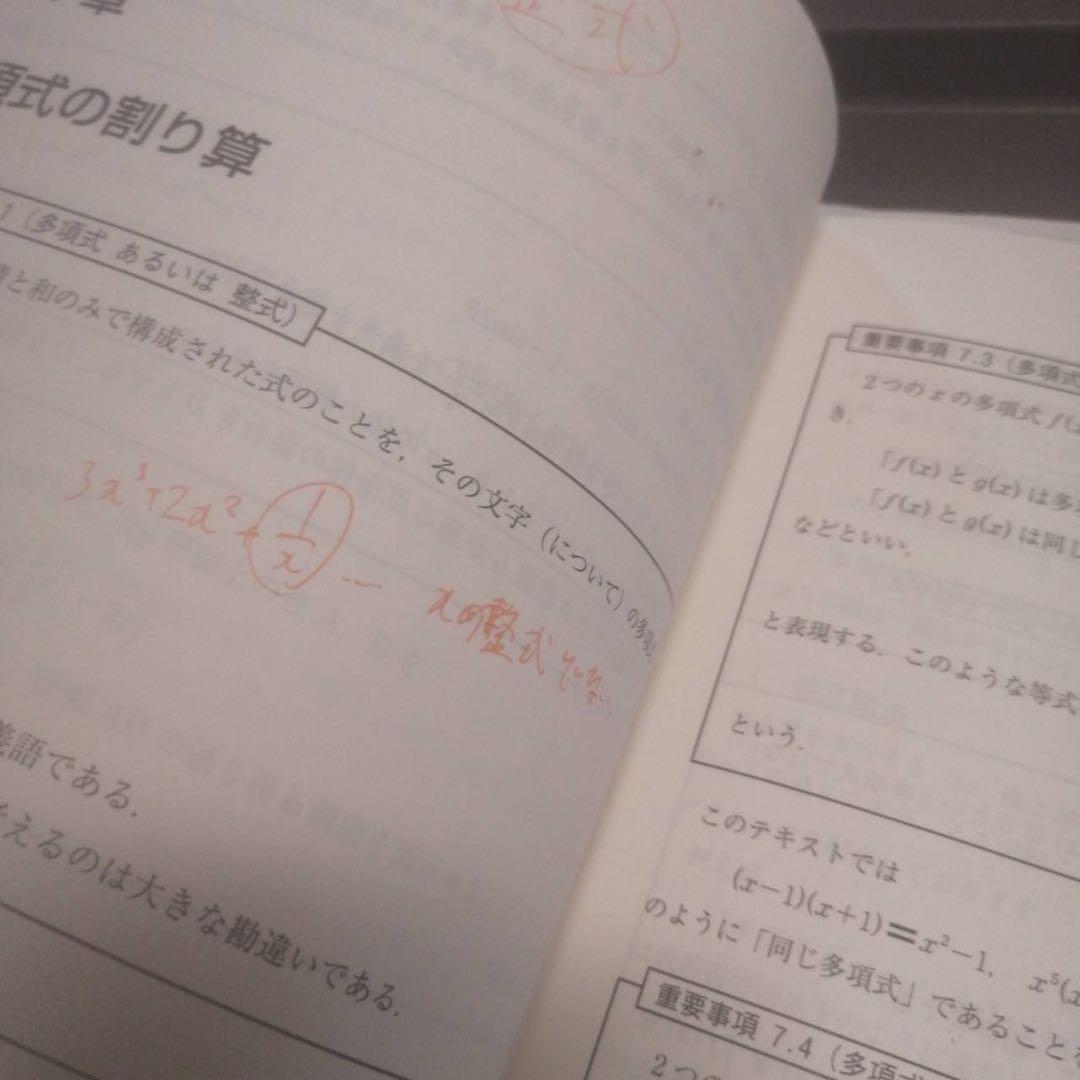 章
整式
項式の割り算
1（多項式 あるいは 整式）
積と和のみで構成された式のことを，その文字（について）の多項
3x³+2x²+1/x … xの整式でない.
義語である．
考えるのは大きな勘違いである．
重要事項 7.3（多項式
2つのxの多項式 f(x
き，
「f(x) と g(x) は多
「f(x) と g(x) は同じ
などといい，
と表現する．このような等式
という．
このテキストでは
(x−1)(x+1)=x²−1, x⁵(x
のように「同じ多項式」であることを
重要事項 7.4（多項式
2つの